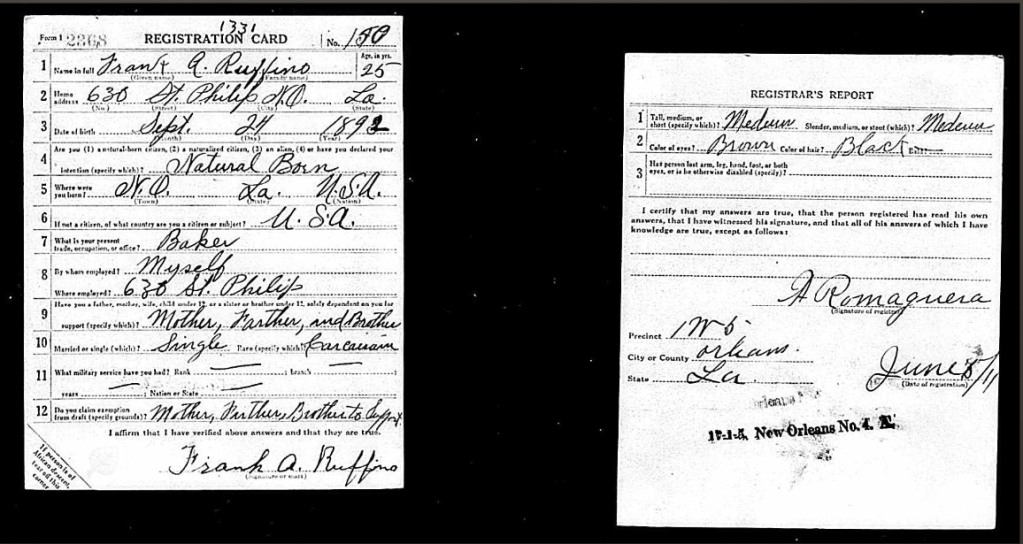 1331
Form 1 2368 REGISTRATION CARD No. 150
1 Name in full Frank A. Ruffino Age, in yrs. 25
(Given name) (Family name)
2 Home address 630 St. Philip N.O. La.
(No.) (Street) (City) (State)
3 Date of birth Sept. 24 1892
(Month) (Day)
4 Are you (1) a natural-born citizen, (2) a naturalized citizen, (3) an alien, (4) or have you declared your
intention (specify which)? Natural Born
5 Where were you born? N.O. La. U.S.A.
(Town) (State) (Nation)
6 If not a citizen, of what country are you a citizen or subject? U.S.A.
7 What is your present trade, occupation, or office? Baker
8 By whom employed? Myself
Where employed? 630 St. Philip
9 Have you a father, mother, wife, child under 12, or a sister or brother under 12, solely dependent on you for
support (specify which)? Mother, Farther, and Brother
10 Married or single (which)? Single Race (specify which)? Carcausin
11 What military service have you had? Rank — ; branch —
years — ; Nation or State —
12 Do you claim exemption from draft (specify grounds)? Mother, Farther, Brother to Support
I affirm that I have verified above answers and that they are true.
Frank A. Ruffino
(Signature or mark)
If person is of
African descent,
tear off this
corner
REGISTRAR'S REPORT
1 Tall, medium, or short (specify which)? Medium Slender, medium, or stout (which)? Medium
2 Color of eyes? Brown Color of hair? Black
3 Has person lost arm, leg, hand, foot, or both
eyes, or is he otherwise disabled (specify)?
I certify that my answers are true, that the person registered has read his own
answers, that I have witnessed his signature, and that all of his answers of which I have
knowledge are true, except as follows:
A Romaguera
(Signature of registrar)
Precinct 1 W 5
City or County Orleans.
State La June
(Date of registration)
17-1-5, New Orleans No. 4. A.